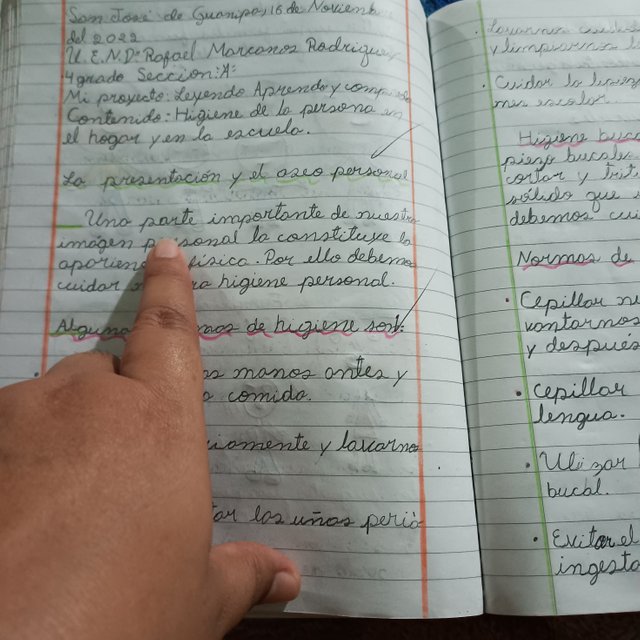 San José de Guanipa, 16 de Noviemb
del 2022
U.E.N.D: Rafael Marcanos Rodrigue
4 grado Sección: "A"
Mi proyecto: Leyendo Aprendo y comp
Contenido: Higiene de la persona en
el hogar y en la escuela.
La presentación y el aseo personal
Una parte importante de nuestra
imágen p sonal la constituye la
aparien física. Por ello debemos
cuidar ra higiene personal.
Alguna mas de higiene son:
manos antes y
comida.
ciamente y lavarno
tar las uñas perió
y limpiarnos
Cuidar la
mes escolar.
Higiene buca
pieza bucal
cortar y trit
sólido que
debemos cui
Normas de
Cepillar nu
vantarnos
y después
Cepillar
lengua.
Uli zar
bucal.
Evitar el
ingesta